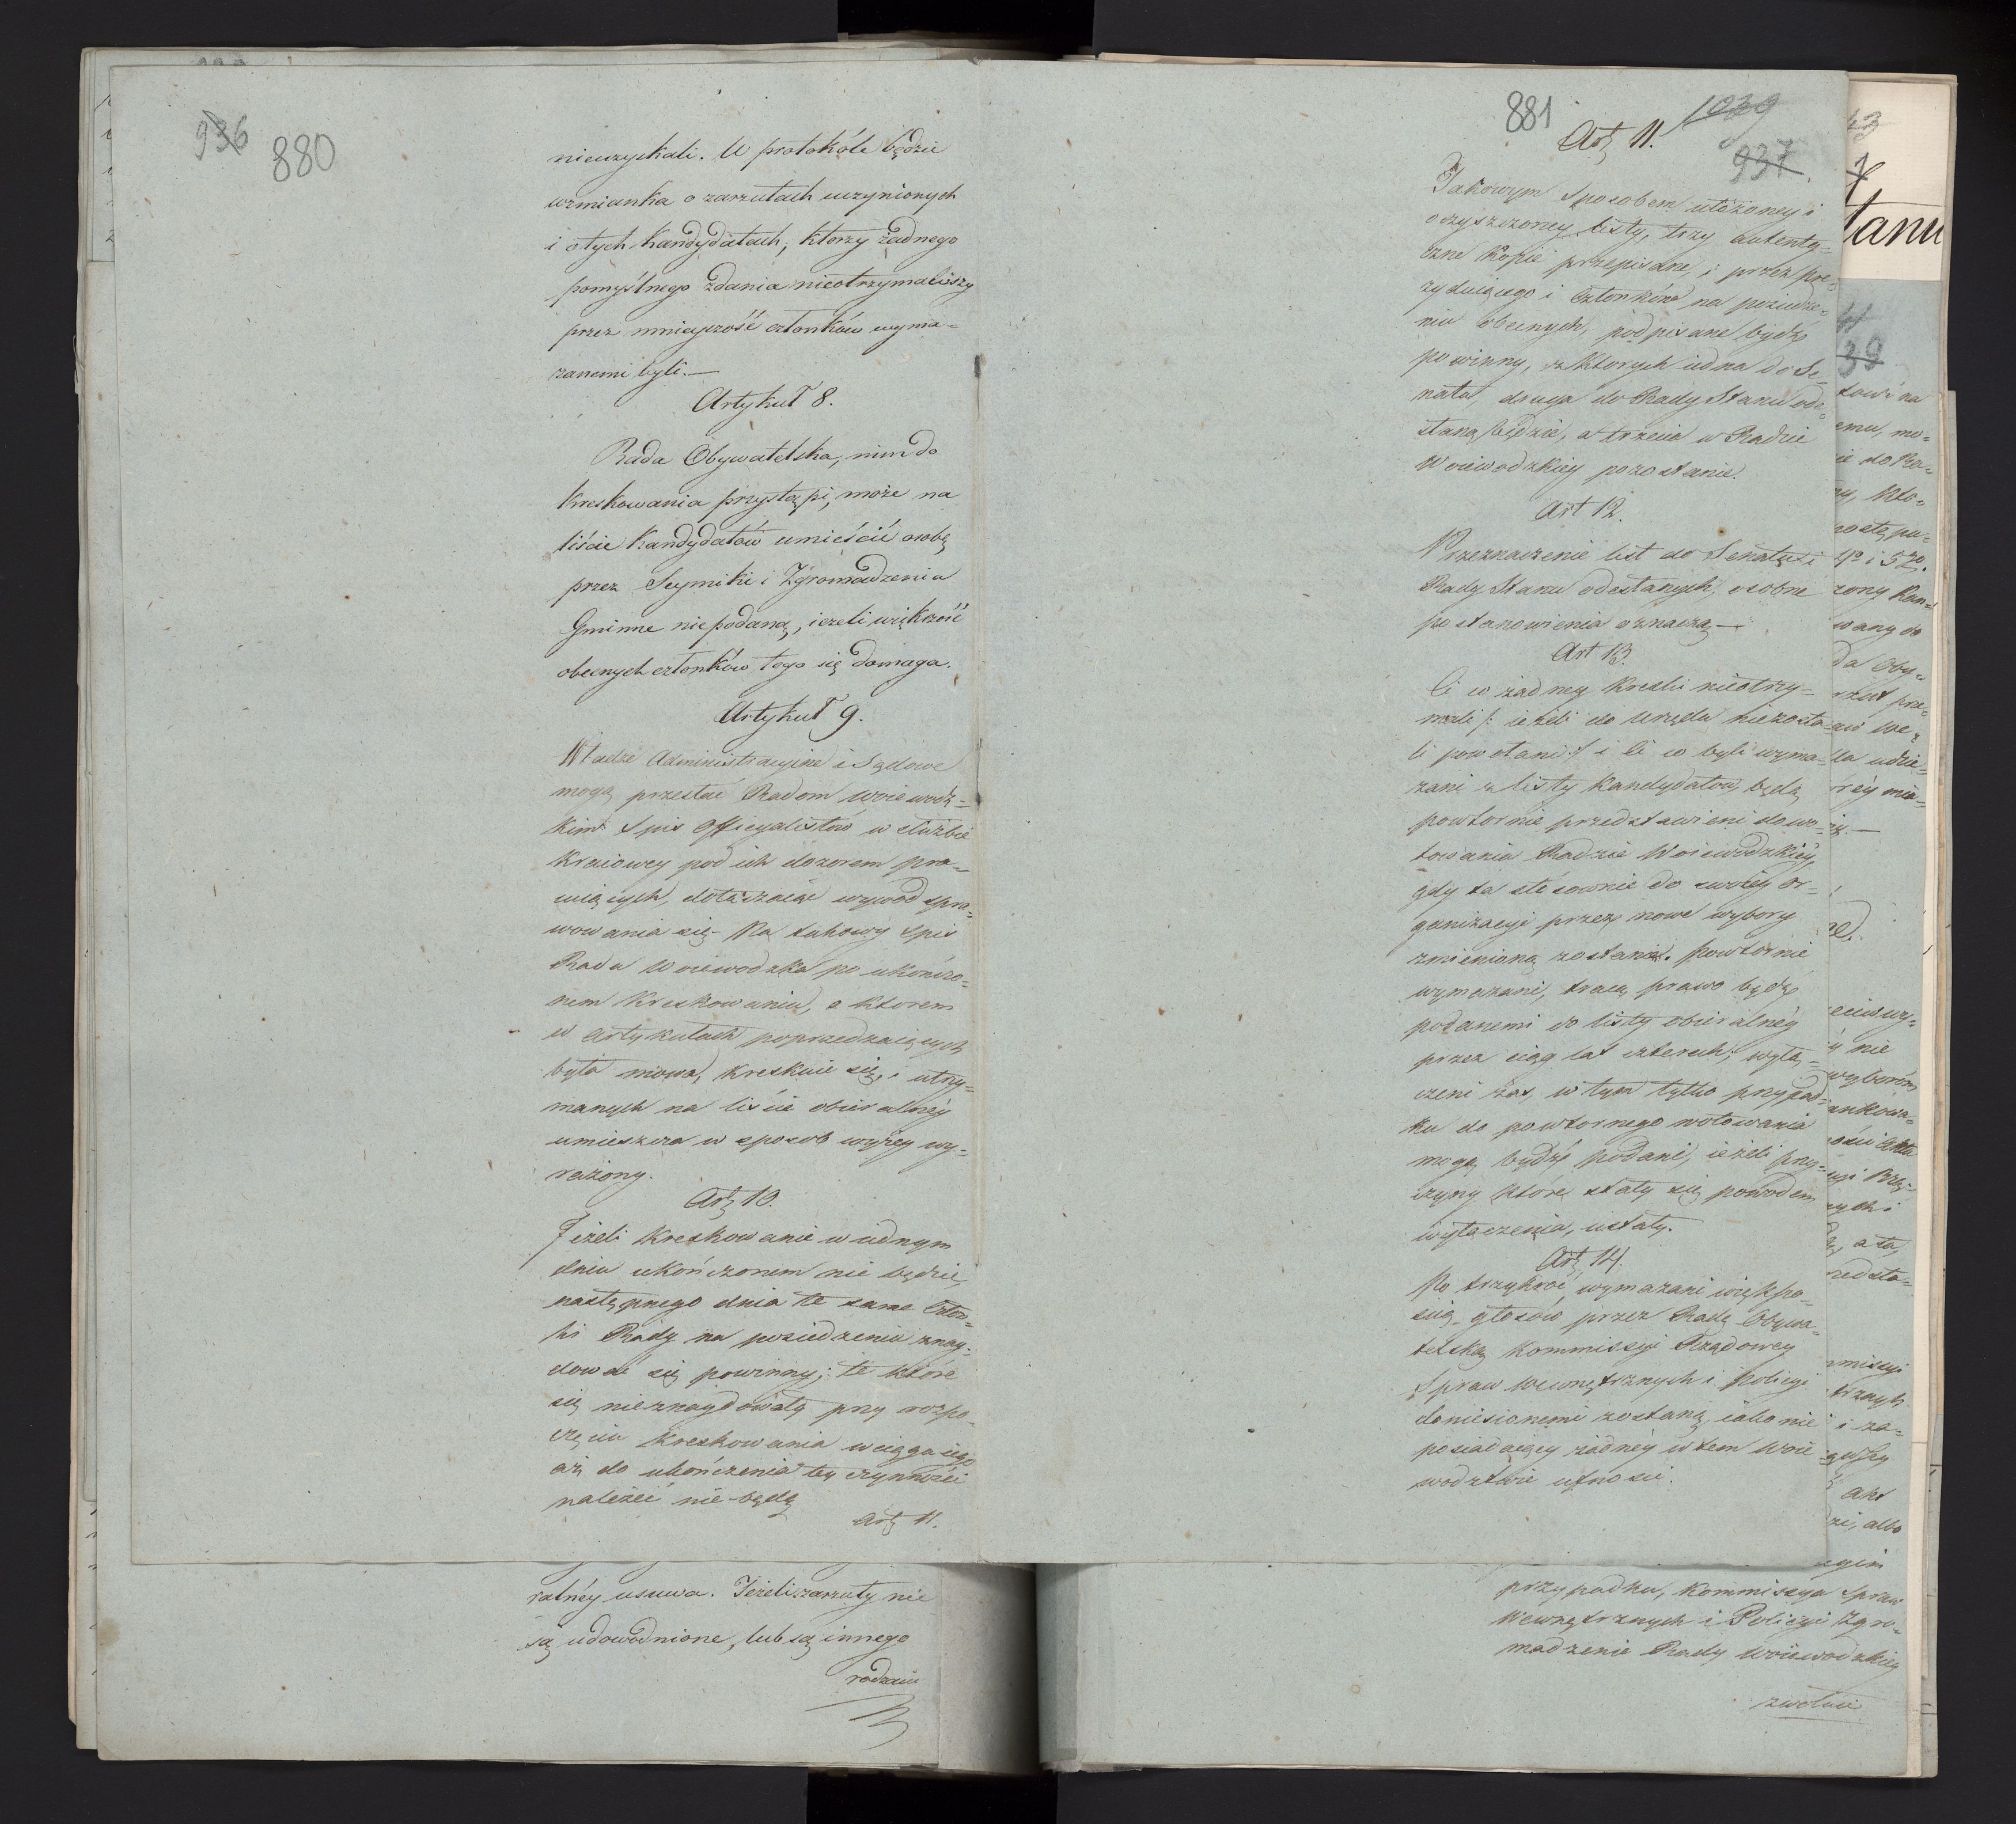 936 880
nieuzyskali. W protokóle będzie
wzmianka o zarzutach uczynionych
i o tych Kandydatach, ktorzy żadnego
pomyślnego zdania nieotrzymaliszy
przez mnieyszość członków wyma-
zanemi byli.—
Artykuł 8.
Rada Obywatelska, nim do
kreskowania przystąpi, może na
liście Kandydatów umieścić osobę
przez Seymiki i Zgromadzenia
Gminne niepodaną, ieżeli większość
obecnych członków tego się domaga.
Artykuł 9.
Władze Administracyine i Sądowe
mogą przesłać Radom Woiewodz=
kim Spis Officyalistów w służbie
Kraiowey pod ich dozorem pra-
cuiących, dołączaiąc wywod spra=
wowania się - Na takowy Spis
Rada Woiewodzka po ukończo-
nem Kreskowaniu, o ktorem
w Artykułach poprzedzaiących
była mowa, kreskuie się, i utrzy=
manych na liście obieralnéy
umieszcza w sposob wyżey wy=
rażony.
Art 10.
Jeżeli Kreskowanie w iednym
dniu ukończonem nie będzie,
następnego dnia te same Człon=
ki Rady na posiedzeniu znay-
dować się powinny; te które
się nieznaydowały przy rozpo-
częciu Kreskowania w ciągu iego
aż do ukończenia tey czynności
należeć nie będą
Art 11.
ralnéy usuwa. Jeżeli zarzuty nie
są udowodnione, lub są innego
rodzaiu
881 1039
937
Art 11.
Takowym Sposobem ułożoney i
oczyszczoney listy, trzy autenty=
czne Kopie przepisane, i przez pre=
zyduiącego i Członków na posiedze=
niu obecnych, podpisane bydź
powinny, z ktorych iedna do Se-
natu, druga do Rady Stanu ode=
słaną będzie, a trzecia w Radzie
Woiewodzkiey pozostanie.
Art 12.
Przeznaczenie list do Senatu i
Rady Stanu odesłanych, osobne
postanowienia oznaczą—
Art 13.
Ci co żadney Kreski nieotrzy=
mali /: ieżeli do Urzędu niezosta-
li powołani :/ i ci co byli wyma-
zani z listy Kandydatow, będą
powtornie przedstawieni do wo-
towania Radzie Woiewodzkiéy,
gdy ta stosownie do swoiey or-
ganizacyi przez nowe wybory
zmienioną zostanie. Powtornie
wymazani, tracą prawo bydź
podanemi do listy obieralnéy
przez ciąg lat czterech; wyłą-
czeni zaś w tym tylko przypad=
ku do powtornego wotowania
mogą bydź podani, ieżeli przy-
czyny które stały się powodem
wyłączenia, ustały.
Art 14.
Po trzykroć wymazani większo-
ścią głosów przez Radę Obywa-
telską Kommissyi Rządowey
Spraw Wewnętrznych i Policyi
doniesionemi zostaną iako nie
posiadaiący żadnéy w tem Woie
wodztwie ufności.
przypadku, Kommissya Spraw
Wewnętrznych i Policyi Zgro=
madzenie Rady Woiewodzkiey
zwołuie